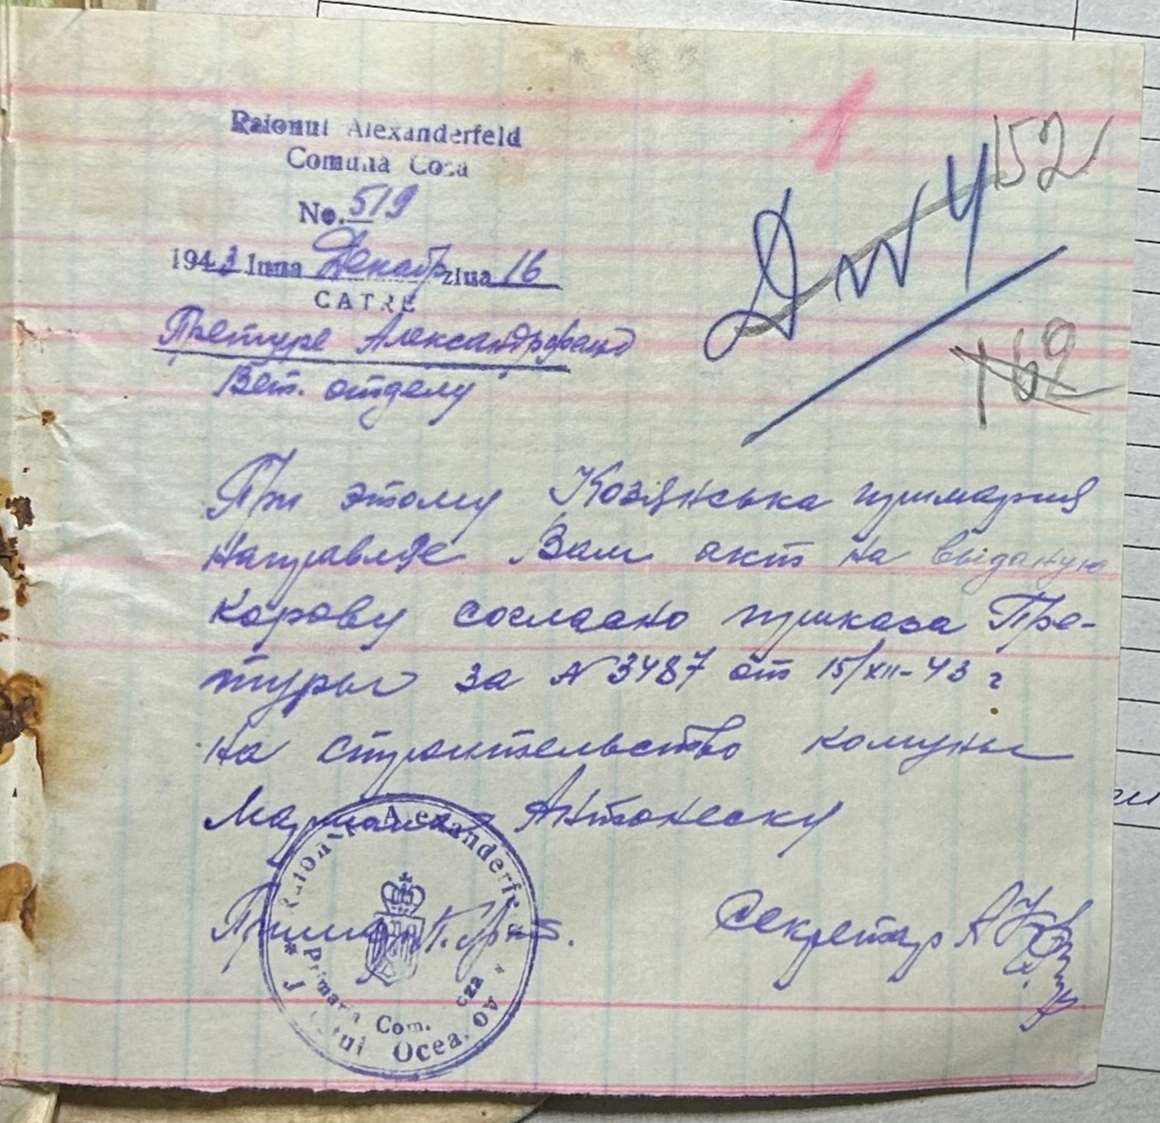 Raionul Alexanderfeld
Comuna Coza
No. 519
1943 luna Декабр ziua 16
CATRE
Претуре Александрфельд
Вет. отделу
152
162
При этому Козянська примария
направляе Вам акт на выданую
корову согласно приказа Пре-
туры за N 3487 от 15/XII-43 г
на строительство комуны
Маршала Антонеску
Примар
Секретар
Raionul Alexanderfeld
Primaria Com. Coza
Judetul Oceacov